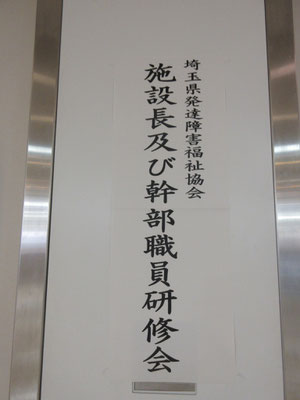 埼玉県発達障害福祉協会
施設長及び幹部職員研修会